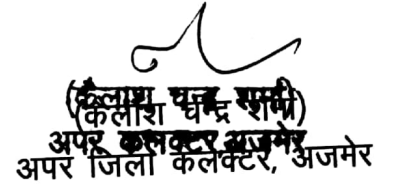 (कैलाश चन्द्र शर्मा)
(कैलाश चन्द्र शर्मा)
अपर कलक्टर अजमेर
अपर जिला कलेक्टर, अजमेर